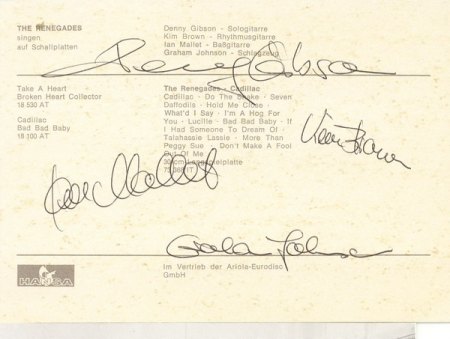 THE RENEGADES
singen
auf Schallplatten
Denny Gibson - Sologitarre
Kim Brown - Rhythmusgitarre
Ian Mallet - Baßgitarre
Graham Johnson - Schlagzeug
Denny Gibson
Take A Heart
Broken Heart Collector
18 530 AT
Cadillac
Bad Bad Baby
18 100 AT
The Renegades - Cadillac
Cadillac - Do The Shake - Seven
Daffodils - Hold Me Close -
What'd I Say - I'm A Hog For
You - Lucille - Bad Bad Baby - If
I Had Someone To Dream Of -
Talahassie Lassie - More Than
Peggy Sue - Don't Make A Fool
Out Of Me
30 cm Langspielplatte
Kim Brown
Ian Mallet
Graham Johnson
HANSA
Im Vertrieb der Ariola-Eurodisc
GmbH